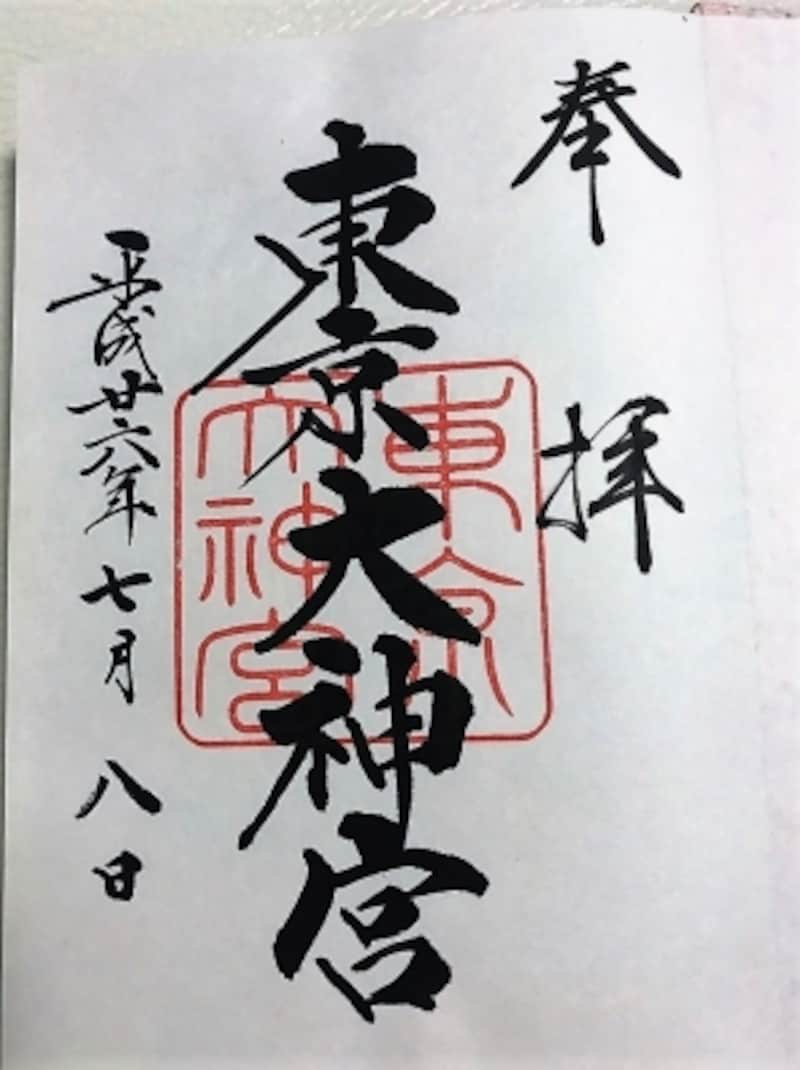 奉拝
東京大神宮
東京
大神宮
平成廿六年七月八日